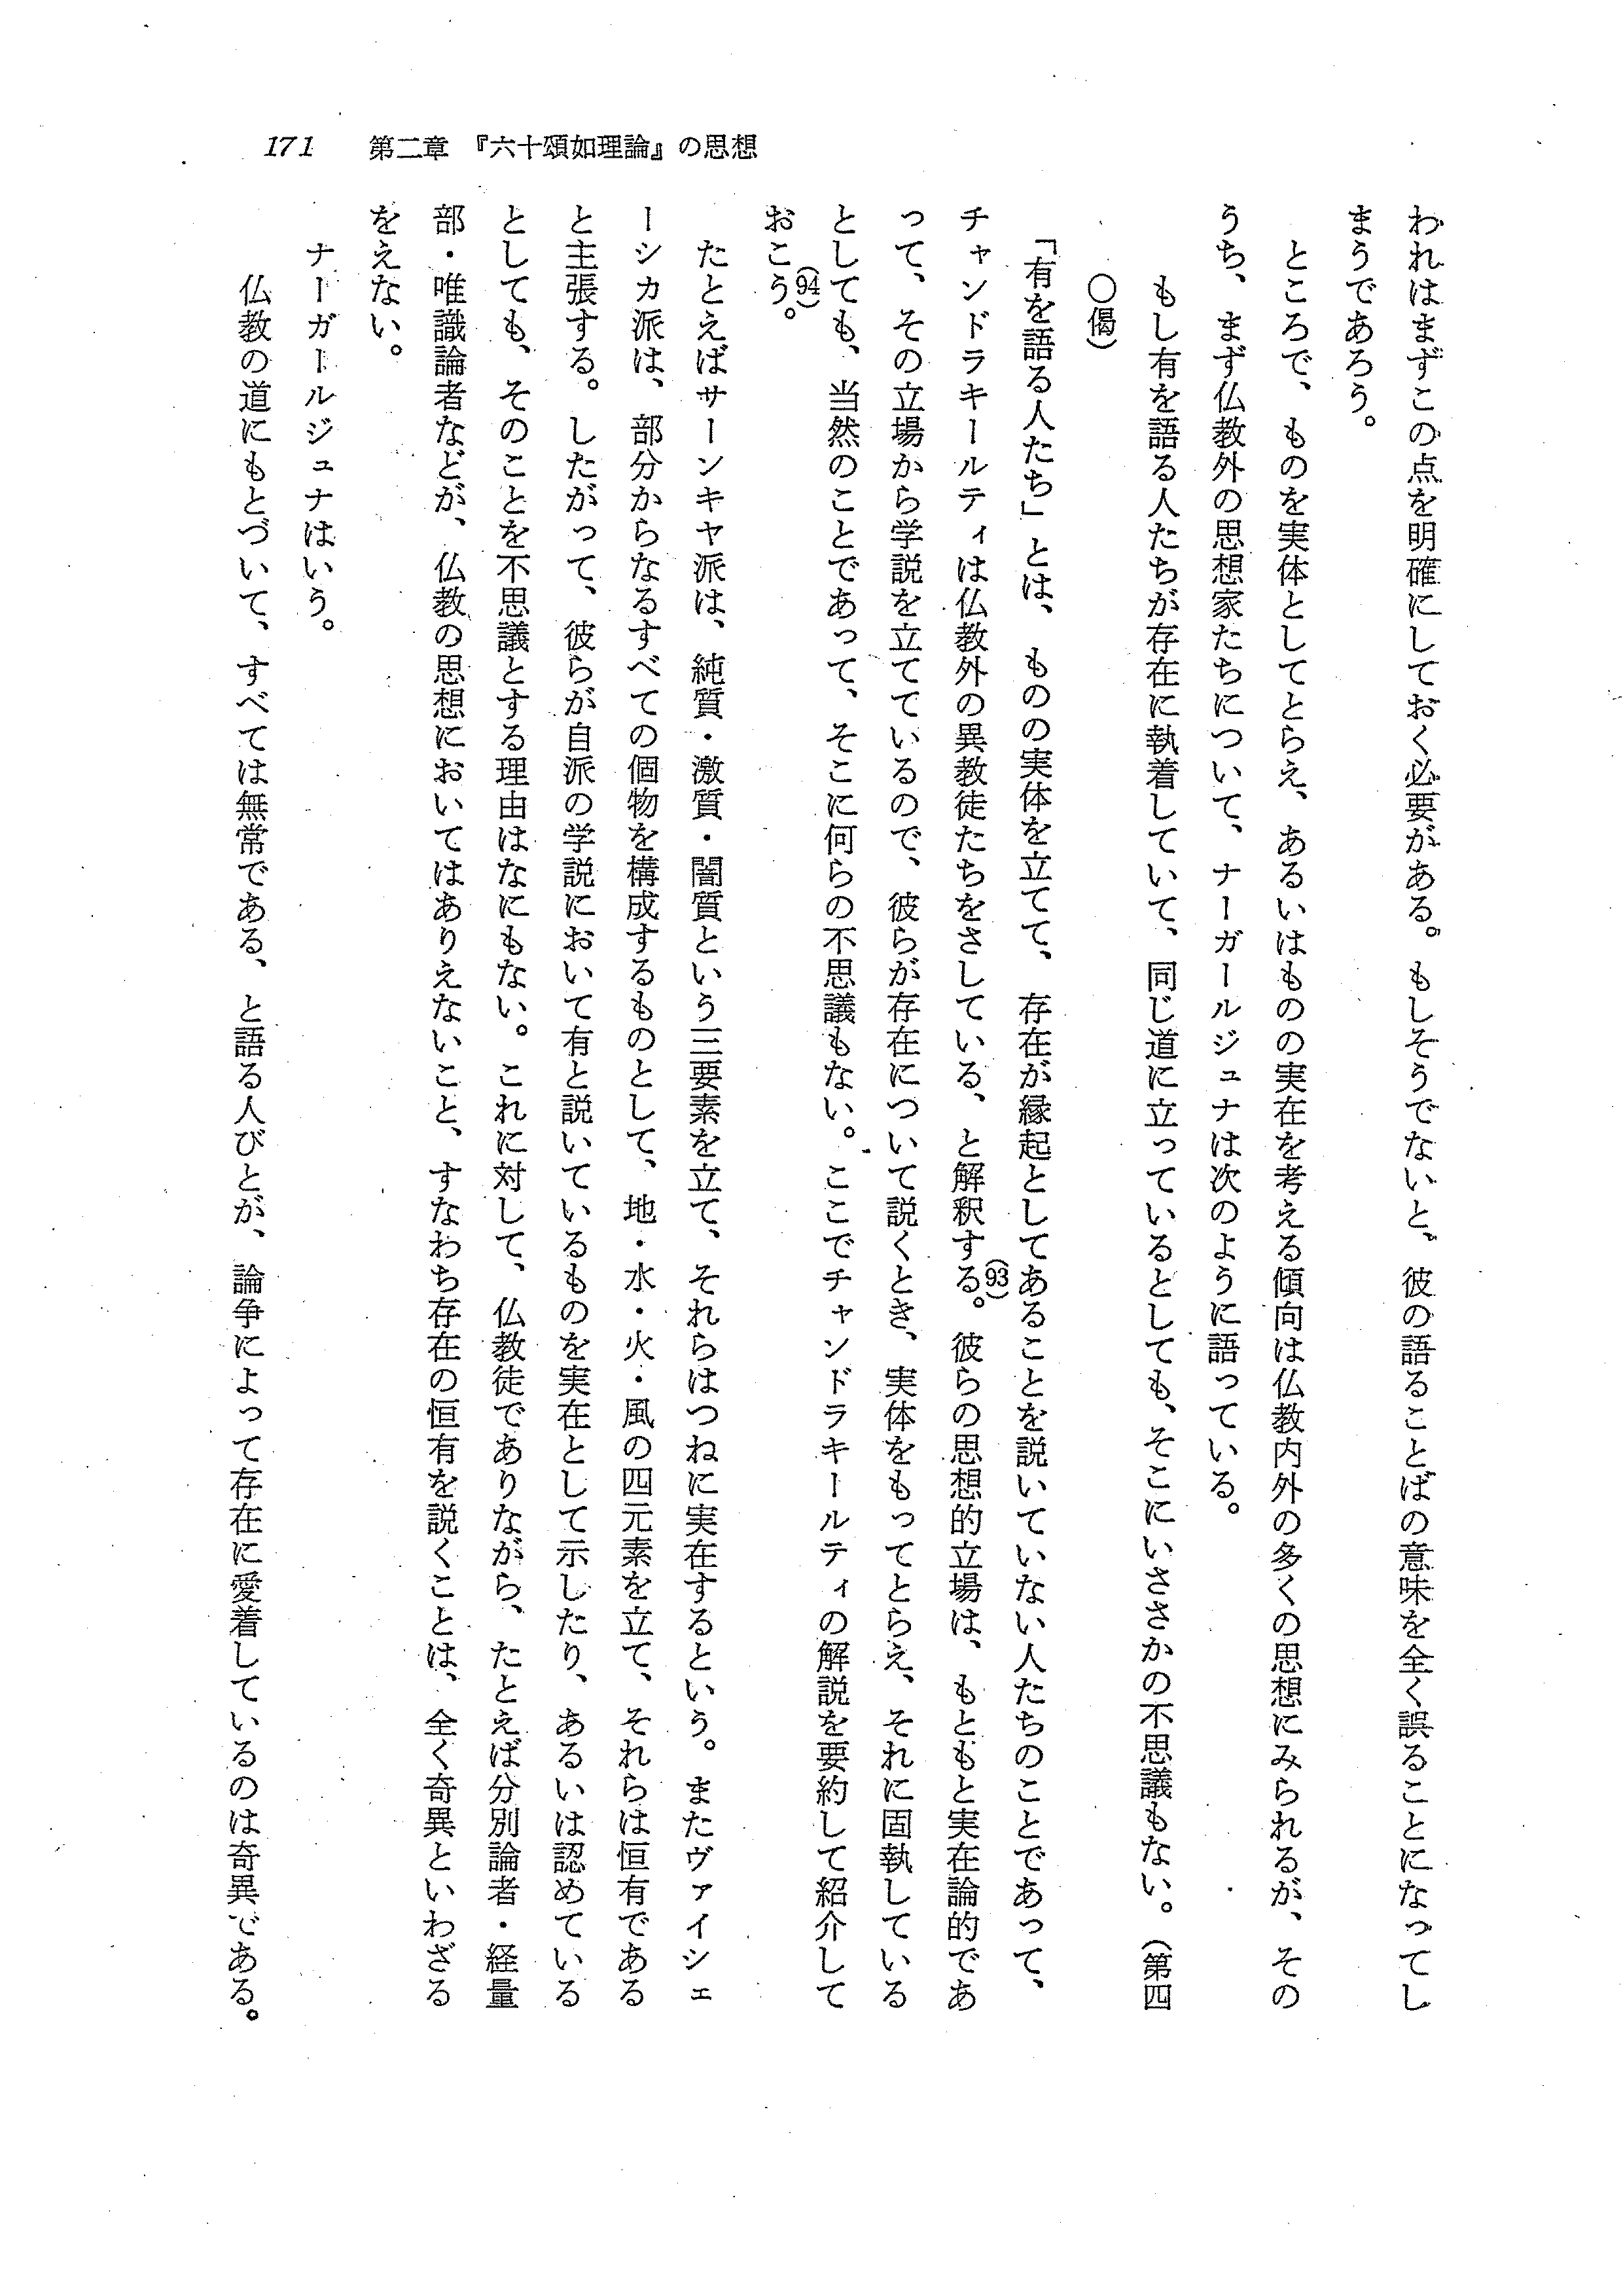 171　第二章　『六十頌如理論』の思想
われはまずこの点を明確にしておく必要がある。もしそうでないと、彼の語ることばの意味を全く誤ることになってし
まうであろう。
ところで、ものを実体としてとらえ、あるいはものの実在を考える傾向は仏教内外の多くの思想にみられるが、その
うち、まず仏教外の思想家たちについて、ナーガールジュナは次のように語っている。
もし有を語る人たちが存在に執着していて、同じ道に立っているとしても、そこにいささかの不思議もない。（第四
〇偈）
「有を語る人たち」とは、ものの実体を立てて、存在が縁起としてあることを説いていない人たちのことであって、
チャンドラキールティは仏教外の異教徒たちをさしている、と解釈する(93)。彼らの思想的立場は、もともと実在論的であ
って、その立場から学説を立てているので、彼らが存在について説くとき、実体をもってとらえ、それに固執している
としても、当然のことであって、そこに何らの不思議もない。ここでチャンドラキールティの解説を要約して紹介して
おこう(94)。
たとえばサーンキヤ派は、純質・激質・闇質という三要素を立て、それらはつねに実在するという。またヴァイシェ
ーシカ派は、部分からなるすべての個物を構成するものとして、地・水・火・風の四元素を立て、それらは恒有である
と主張する。したがって、彼らが自派の学説において有と説いているものを実在として示したり、あるいは認めている
としても、そのことを不思議とする理由はなにもない。これに対して、仏教徒でありながら、たとえば分別論者・経量
部・唯識論者などが、仏教の思想においてはありえないこと、すなわち存在の恒有を説くことは、全く奇異といわざる
をえない。
ナーガールジュナはいう。
仏教の道にもとづいて、すべては無常である、と語る人びとが、論争によって存在に愛着しているのは奇異である。